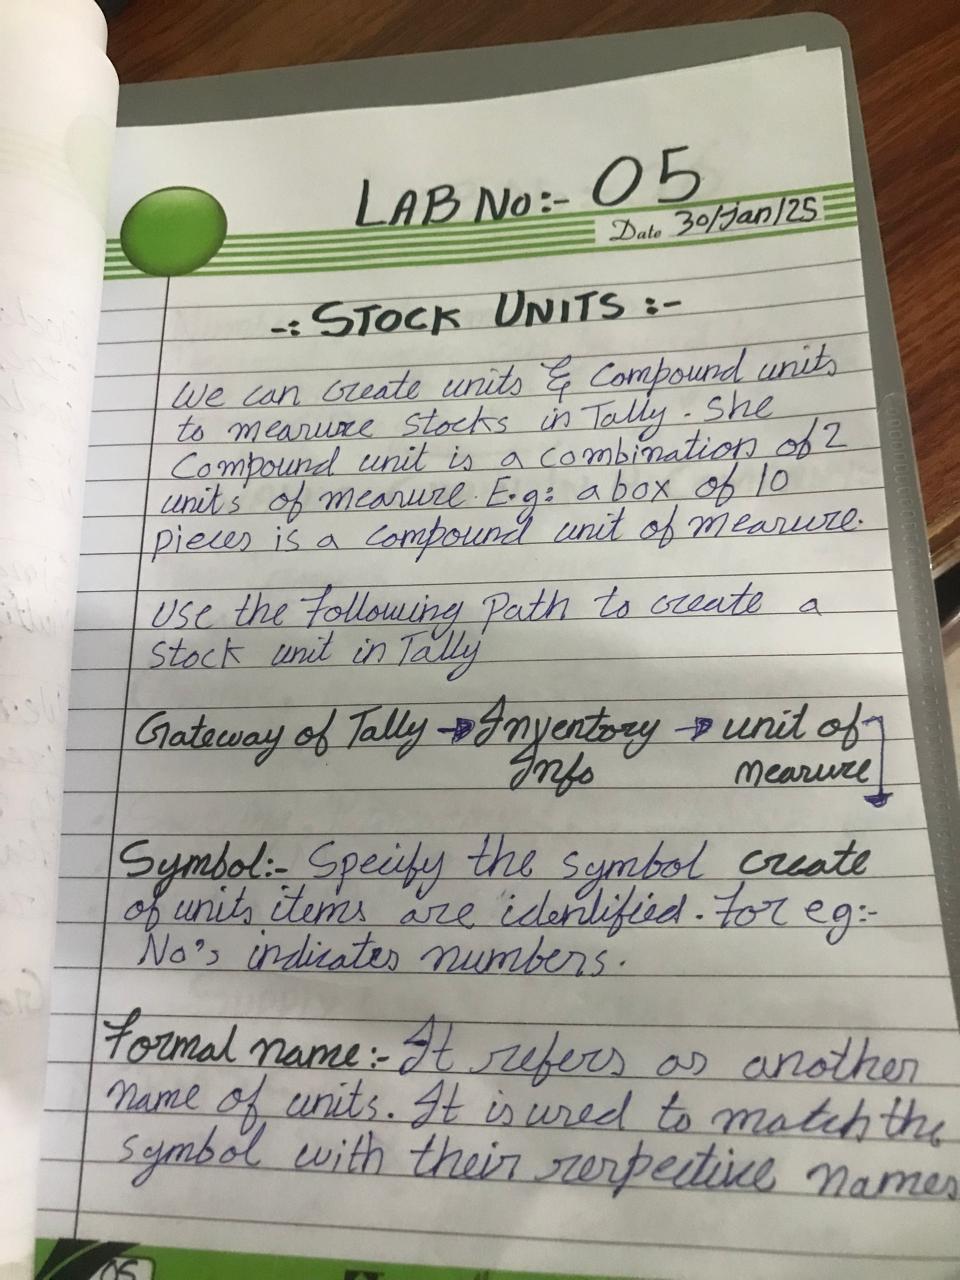 LAB No:- 05
Date 30/Jan/25
-: STOCK UNITS :-
We can create units & Compound units
to measure Stocks in Tally. She
Compound unit is a combination of 2
units of measure. E.g: a box of 10
pieces is a compound unit of measure.
Use the following Path to create a
Stock unit in Tally
Gateway of Tally → Inventory → unit of
Info measure
Symbol:- Specify the symbol create
of units items are identified. For eg:-
No's indicates numbers.
Formal name:- It refers as another
name of units. It is used to match the
symbol with their respective names
05